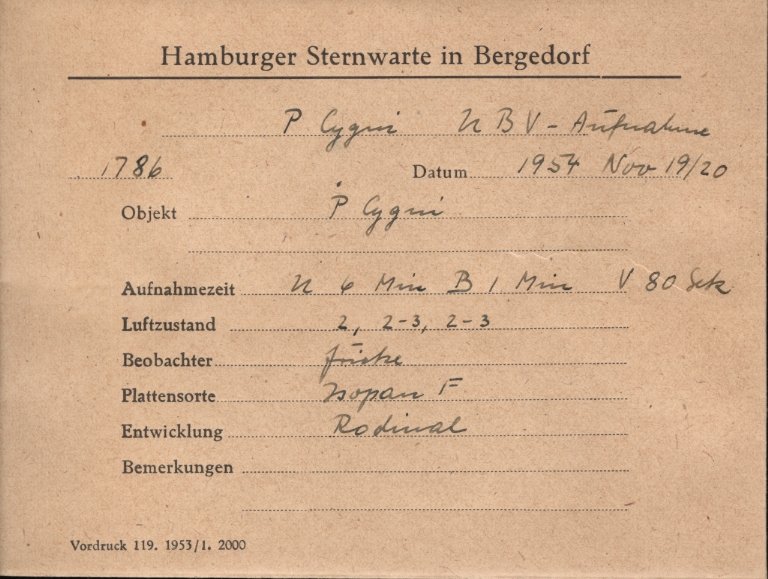 Hamburger Sternwarte in Bergedorf
P Cygni U B V - Aufnahme
1786 Datum 1954 Nov 19/20
Objekt P Cygni
Aufnahmezeit U 6 Min B 1 Min V 80 Sek
Luftzustand 2, 2-3, 2-3
Beobachter
Plattensorte Isopan F
Entwicklung Rodinal
Bemerkungen
Vordruck 119. 1953/1. 2000